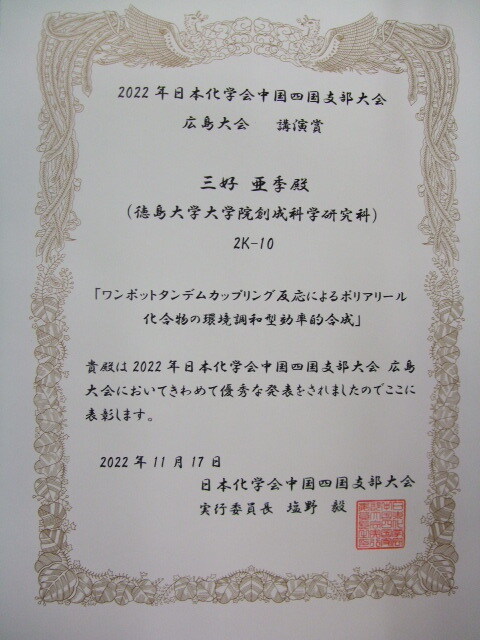 2022年日本化学会中国四国支部大会
広島大会 講演賞
三好 亜季殿
(徳島大学大学院創成科学研究科)
2K-10
「ワンポットタンデムカップリング反応によるポリアリール
化合物の環境調和型効率的合成」
貴殿は2022年日本化学会中国四国支部大会 広島
大会においてきわめて優秀な発表をされましたのでここに
表彰します。
2022年11月17日
日本化学会中国四国支部大会
実行委員長 塩野 毅